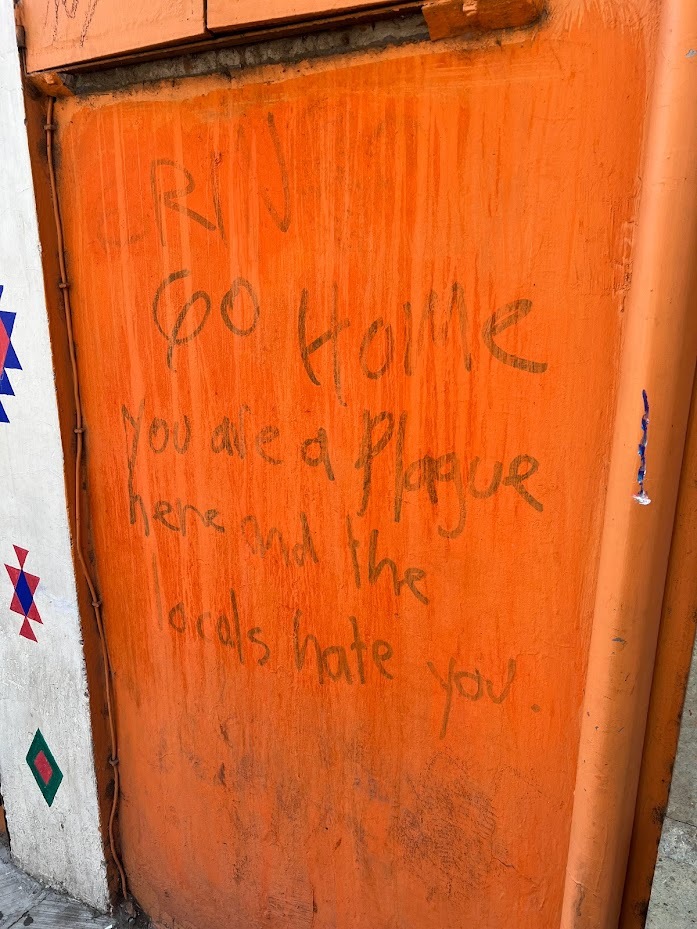 ERIN
GO HoMe
you are a Plague
here and the
locals hate you.